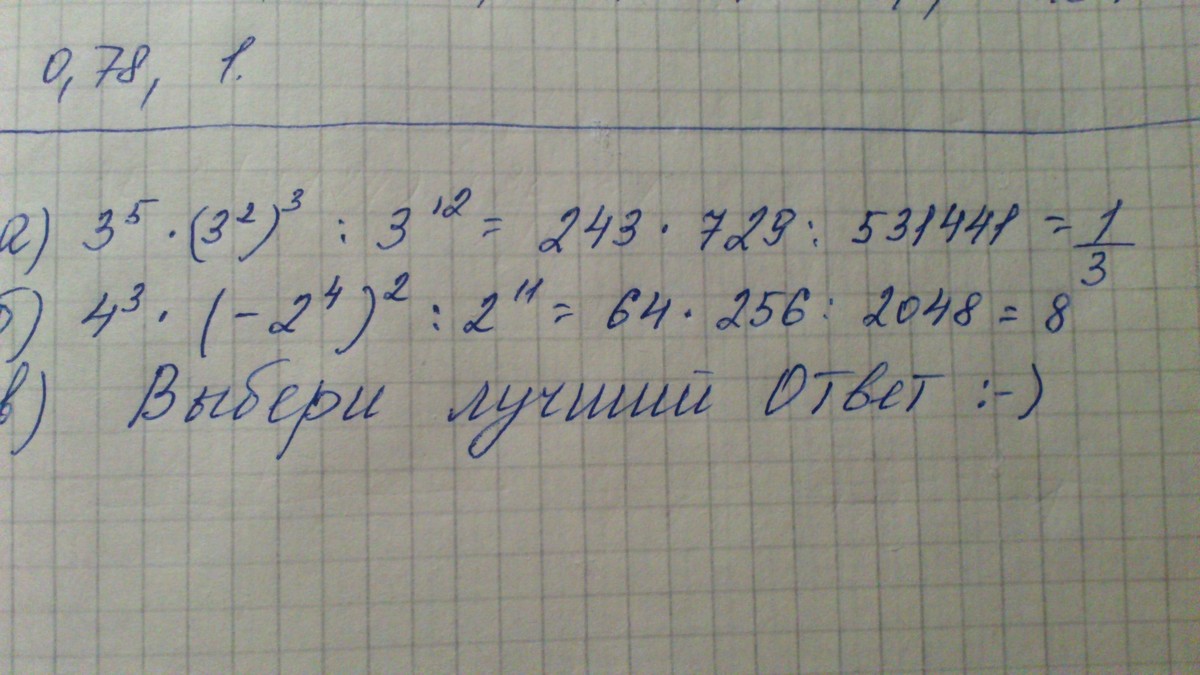 0,78, 1.
а) 3⁵ · (3²)³ : 3¹² = 243 · 729 : 531441 = 1/3
б) 4³ · (-2⁴)² : 2¹¹ = 64 · 256 : 2048 = 8
в) Выбери лучший Ответ :-)